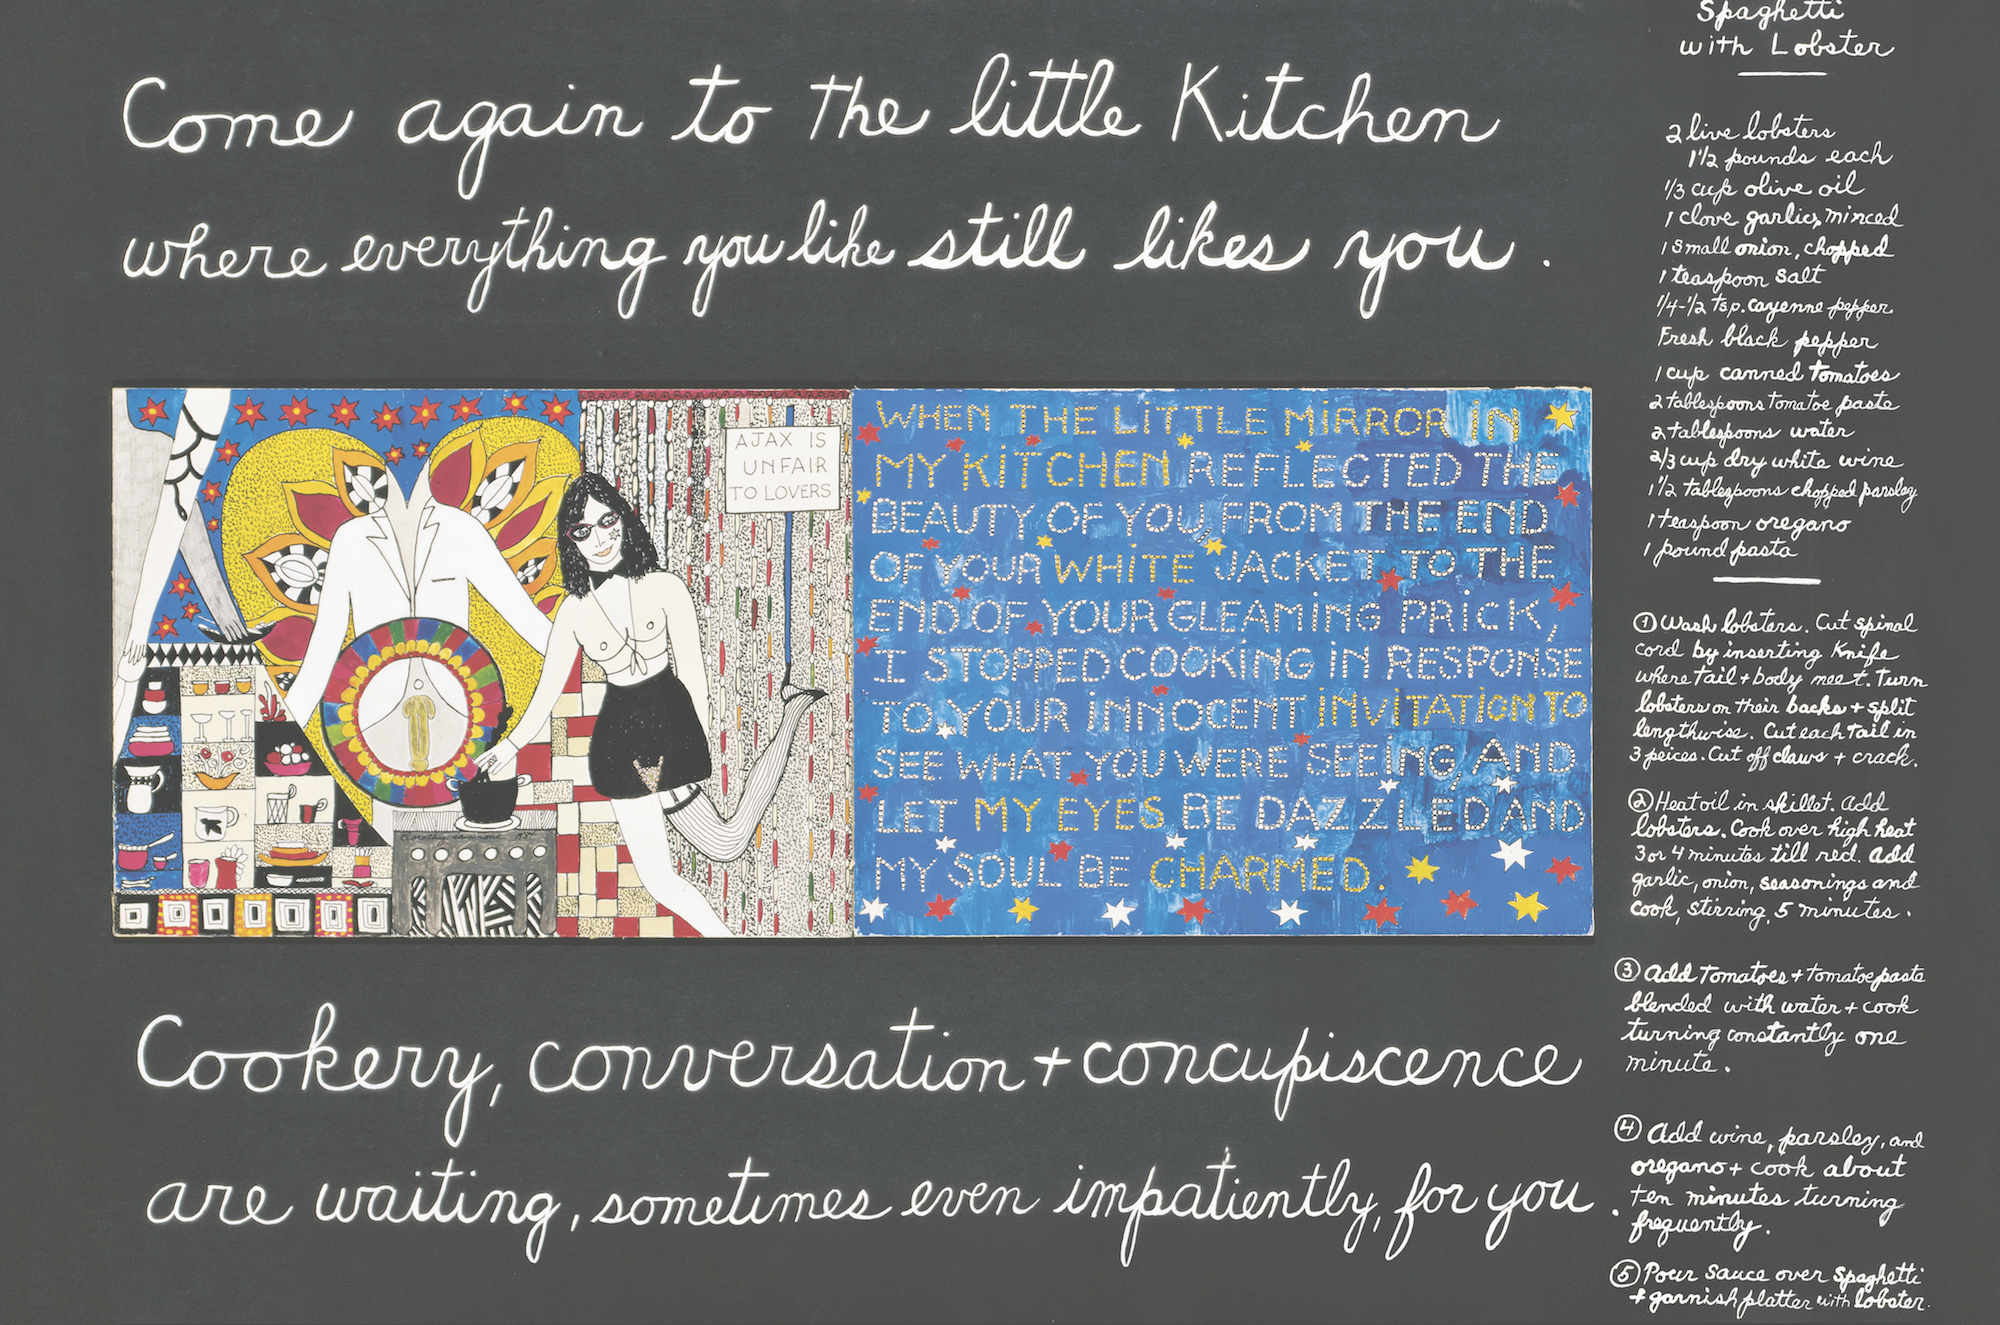 Come again to the little Kitchen
where everything you like still likes you.
AJAX IS
UNFAIR
TO LOVERS
WHEN THE LITTLE MIRROR IN
MY KITCHEN REFLECTED THE
BEAUTY OF YOU, FROM THE END
OF YOUR WHITE JACKET TO THE
END OF YOUR GLEAMING PRICK,
I STOPPED COOKING IN RESPONSE
TO YOUR INNOCENT INVITATION TO
SEE WHAT YOU WERE SEEING, AND
LET MY EYES BE DAZZLED AND
MY SOUL BE CHARMED.
Cookery, conversation + concupiscence
are waiting, sometimes even impatiently, for you.
Spaghetti
with Lobster
2 live lobsters
1 1/2 pounds each
1/3 cup olive oil
1 clove garlic, minced
1 small onion, chopped
1 teaspoon salt
1/4-1/2 tsp. cayenne pepper
Fresh black pepper
1 cup canned tomatoes
2 tablespoons tomatoe paste
2 tablespoons water
2/3 cup dry white wine
1 1/2 tablespoons chopped parsley
1 teaspoon oregano
1 pound pasta
① Wash lobsters. Cut spinal
cord by inserting Knife
where tail + body meet. Turn
lobsters on their backs + split
lengthwise. Cut each tail in
3 peices. Cut off claws + crack.
② Heat oil in skillet. Add
lobsters. Cook over high heat
3 or 4 minutes till red. Add
garlic, onion, seasonings and
cook, stirring, 5 minutes.
③ Add Tomatoes + tomatoe paste
blended with water + cook
turning constantly one
minute.
④ Add wine, parsley, and
oregano + cook about
ten minutes turning
frequently.
⑤ Pour sauce over spaghetti
+ garnish platter with lobster.